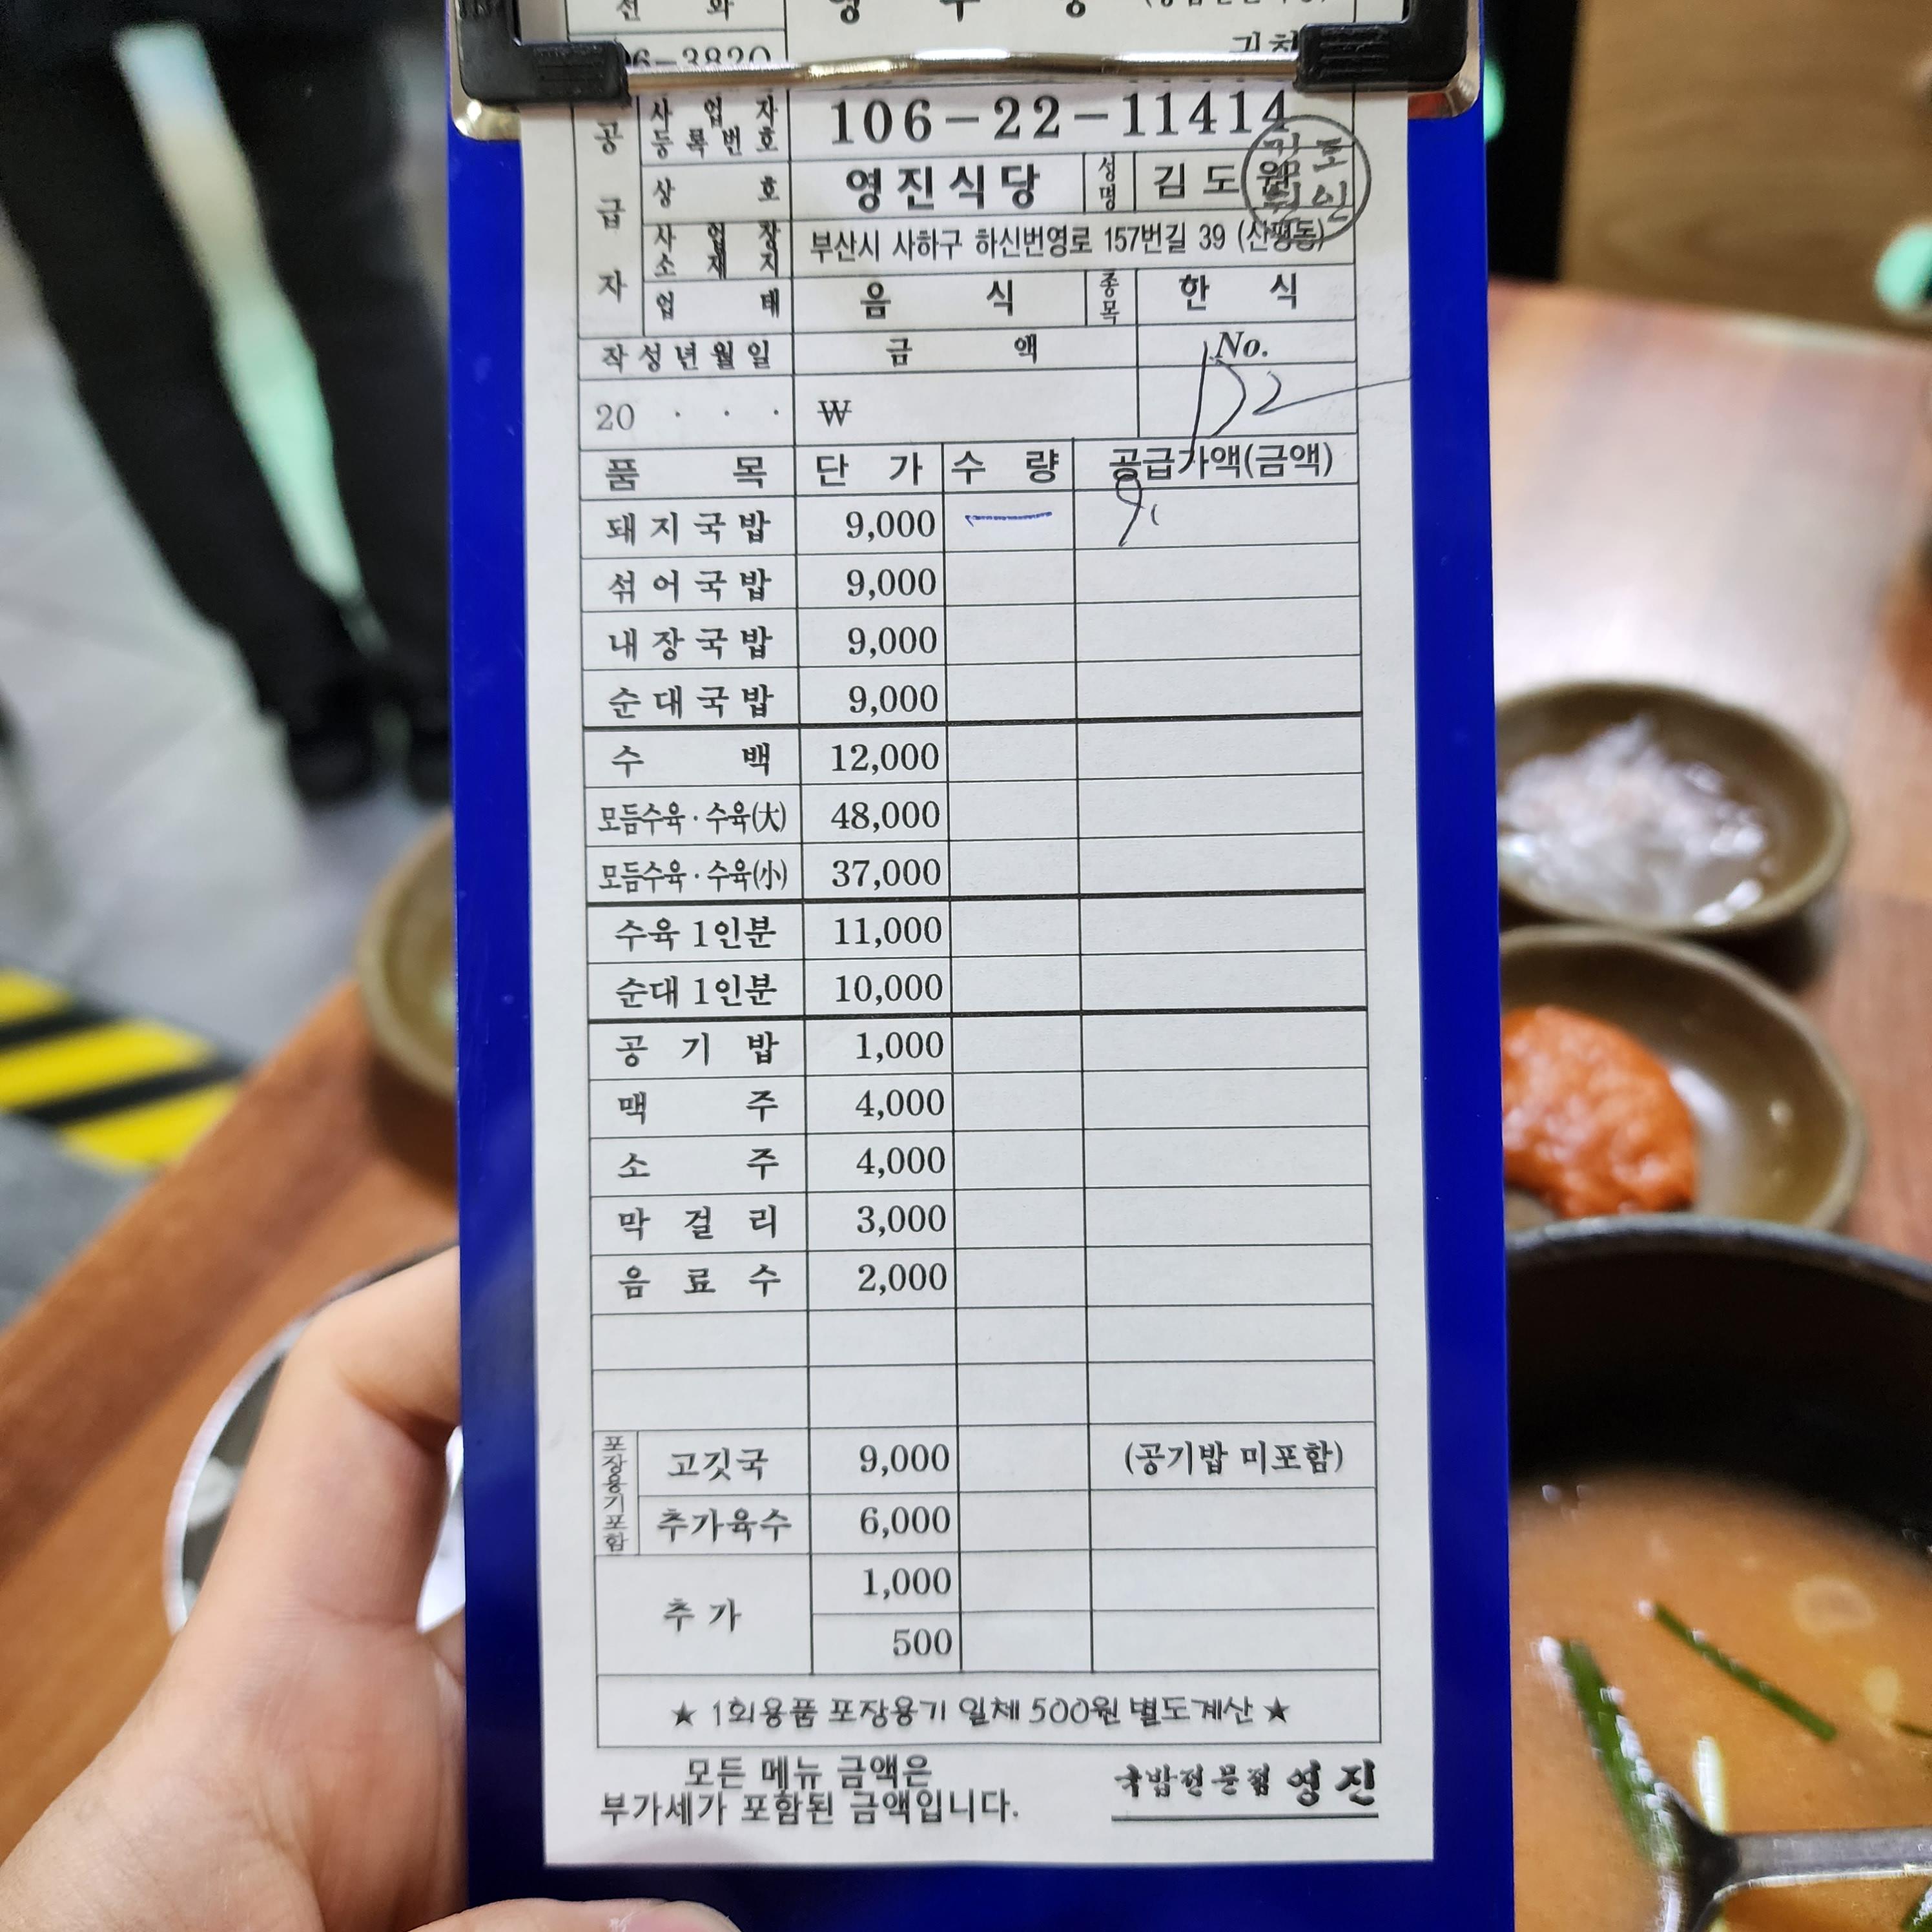 06-3820
공급자
사업자등록번호 106-22-11414
상호 영진식당 성명 김도원
사업장소재지 부산시 사하구 하신번영로 157번길 39 (신평동)
업태 음식 종목 한식
작성년월일 금액 No.
20 . . . ₩ D2
품목 단가 수량 공급가액(금액)
돼지국밥 9,000 — 9
섞어국밥 9,000
내장국밥 9,000
순대국밥 9,000
수백 12,000
모듬수육·수육(大) 48,000
모듬수육·수육(小) 37,000
수육 1인분 11,000
순대 1인분 10,000
공기밥 1,000
맥주 4,000
소주 4,000
막걸리 3,000
음료수 2,000
포장용기포함
고깃국 9,000 (공기밥 미포함)
추가육수 6,000
추가 1,000
500
★ 1회용품 포장용기 일체 500원 별도계산 ★
모든 메뉴 금액은
부가세가 포함된 금액입니다.
국밥전문점 영진